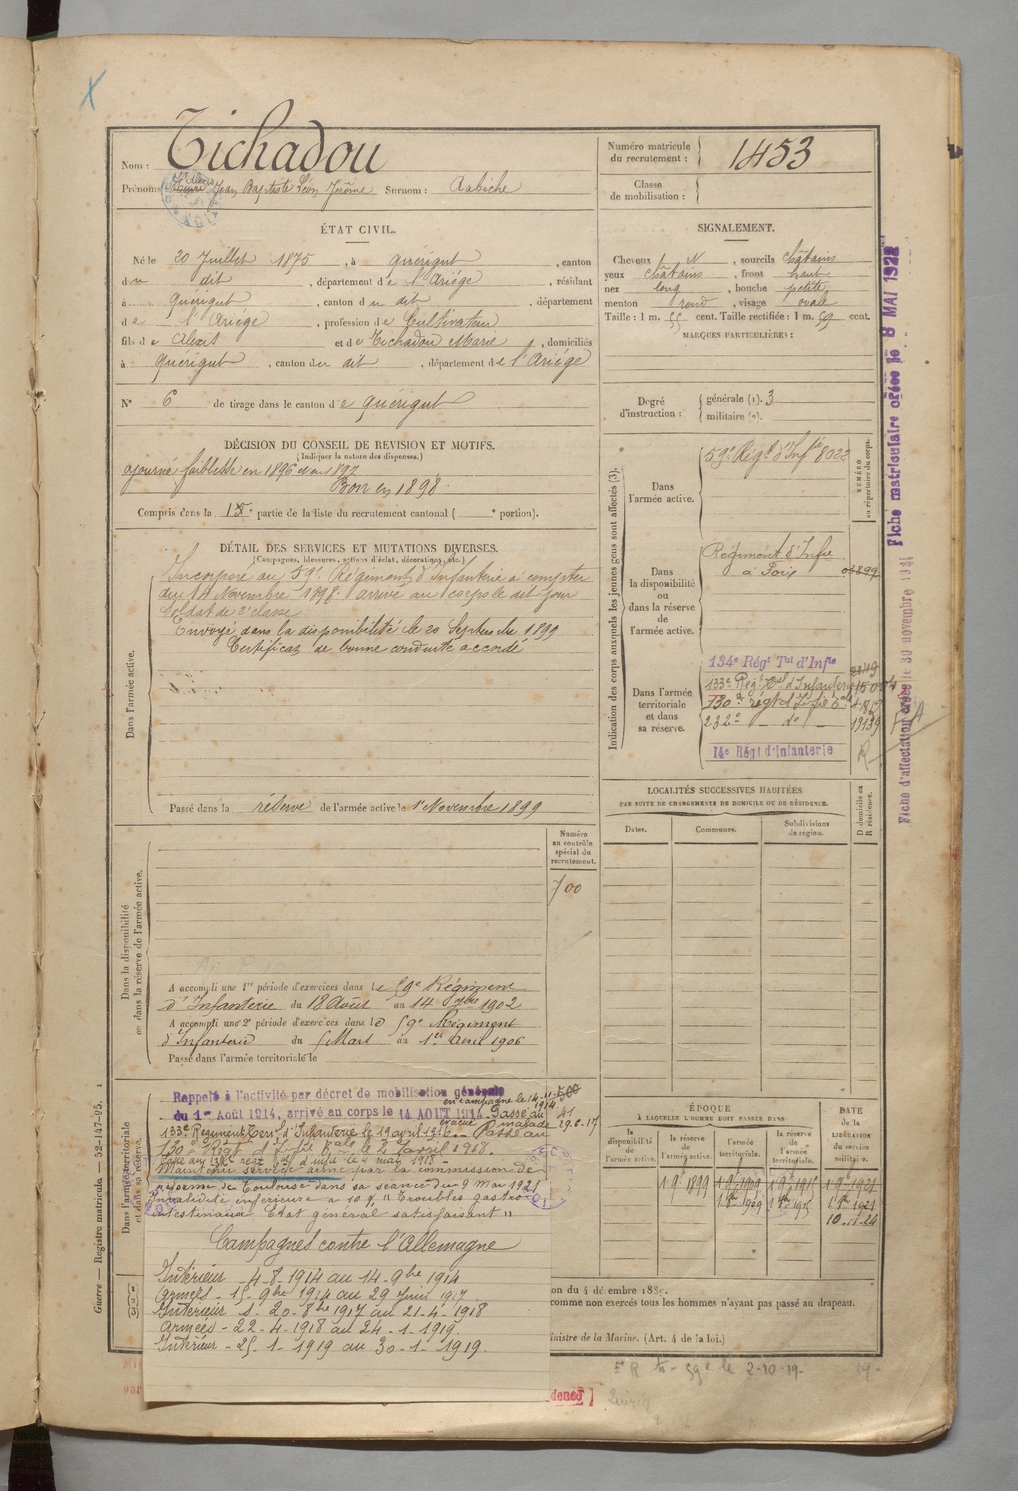 Nom : Tichadou
Prénoms : Jean Baptiste Léon Jérôme Surnom : Rabiche
Numéro matricule du recrutement : 1453
Classe de mobilisation :
ÉTAT CIVIL.
Né le 20 Juillet 1875, à Quérigut, canton
du dit, département de l'Ariège, résidant
à Quérigut, canton du dit, département
de l'Ariège, profession de Cultivateur
fils de Alexis et de Tichadou Marie, domiciliés
à Quérigut, canton du dit, département de l'Ariège
N° 6 de tirage dans le canton de Quérigut
SIGNALEMENT.
Cheveux N, sourcils châtains
yeux châtains, front haut
nez long, bouche petite
menton rond, visage ovale
Taille : 1 m. 55 cent. Taille rectifiée : 1 m. 59 cent.
MARQUES PARTICULIÈRES :
Degré d'instruction : générale (1). 3
militaire (2).
DÉCISION DU CONSEIL DE REVISION ET MOTIFS.
(Indiquer la nature des dispenses.)
ajourné faiblesse en 1896 1897
Bon en 1898
Compris dans la 1re partie de la liste du recrutement cantonal ( e portion).
DÉTAIL DES SERVICES ET MUTATIONS DIVERSES.
(Campagnes, blessures, actions d'éclat, décorations, etc.)
Dans l'armée active.
Incorporé au 59e Régiment d'Infanterie à compter
du 14 Novembre 1898 arrivé au corps le dit jour
Soldat de 2e classe
Envoyé dans la disponibilité le 20 Septembre 1899
Certificat de bonne conduite accordé
Passé dans la réserve de l'armée active le 1er Novembre 1899
Indication des corps auxquels les jeunes gens sont affectés (3).
NUMÉRO au répertoire du corps.
Dans l'armée active.
59e Régt d'Infie 8022
Dans la disponibilité ou dans la réserve de l'armée active.
Régiment d'Infie
à Foix
Dans l'armée territoriale et dans sa réserve.
134e Régt Tal d'Infie
133e Régt Tal d'Infanterie
130e régt d'Infie
232e - do -
14e Régt d'Infanterie
Fiche matriculaire créée le 8 MAI 1922
Fiche d'affectation créée le 30 novembre
LOCALITÉS SUCCESSIVES HABITÉES
PAR SUITE DE CHANGEMENTS DE DOMICILE OU DE RÉSIDENCE.
Dates. Communes. Subdivisions de région. D domicile ou R résidence.
Dans la disponibilité ou dans la réserve de l'armée active.
Numéro au contrôle spécial du recrutement.
700
A accompli une 1re période d'exercices dans le 59e Régiment
d'Infanterie du 18 Août au 14 7bre 1902
A accompli une 2e période d'exercices dans le 59e Régiment
d'Infanterie du 5 Mars au 1er Avril 1906
Passé dans l'armée territoriale le
Dans l'armée territoriale et dans sa réserve.
Rappelé à l'activité par décret de mobilisation générale
en campagne le 14-11-1914
du 1er Août 1914, arrivé au corps le 14 AOUT 1914. Passé au
évacué malade 29.6.17
133e Régiment Terr. d'Infanterie le 19 avril 1916. Passé au
130e Régt d'Infie Tale le 2 avril 1918.
Maintenu service armé par la commission de
réforme de Toulouse dans sa séance du 9 Mai 1921
Invalidité inférieure à 10 % "Troubles gastro
intestinaux. Etat général satisfaisant"
Campagnes contre l'Allemagne
Intérieur - 4-8-1914 au 14-9bre 1914
Armées - 15-9bre 1914 au 29 Juin 1917
Intérieur s. 20-8bre 1917 au 21-4-1918
Armées - 22-4-1918 au 24-1-1919.
Intérieur - 25-1-1919 au 30-1-1919.
ÉPOQUE À LAQUELLE L'HOMME DOIT PASSER DANS
la disponibilité de l'armée active. la réserve de l'armée active. l'armée territoriale. la réserve de l'armée territoriale.
DATE DE LA LIBÉRATION du service militaire.
1 9bre 1899 1 9bre 1909 1 9bre 1915 1 9bre 1921
1 8bre 1909 1 8bre 1915 1 8bre 1921
10-11-24
on du 4 décembre 188
comme non exercés tous les hommes n'ayant pas passé au drapeau.
inistre de la Marine. (Art. 4 de la loi.)
59e le 2-10-19-
Guerre — Registre matricule. — 52-147-95.